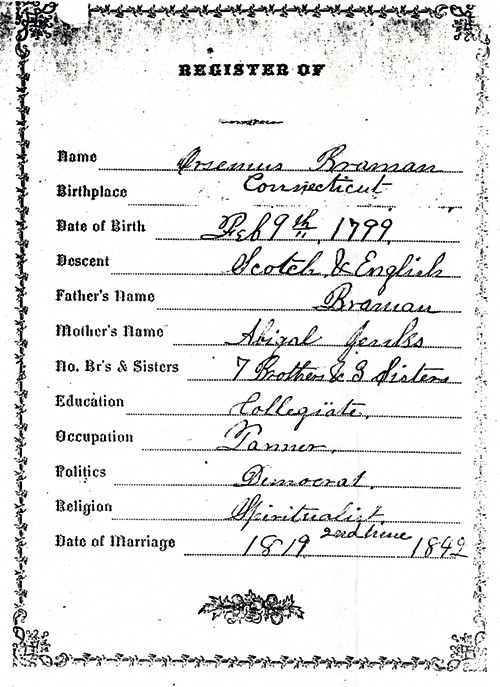 REGISTER OF
Name Orsemus Braman
Birthplace Connecticut
Date of Birth Feb 9th, 1799
Descent Scotch & English
Father's Name Braman
Mother's Name Abigal Jenks
No. Br's & Sisters 7 Brothers & 3 Sisters
Education Collegiate.
Occupation Tanner.
Politics Democrat.
Religion Spiritualist
Date of Marriage 1819 2nd time 1842